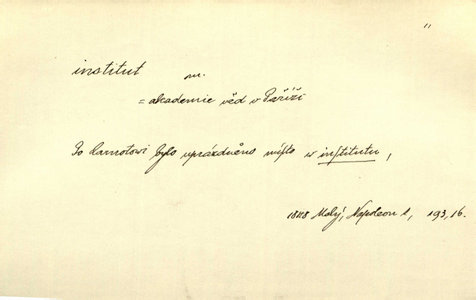 "
institut m.
= akademie věd v Paříži
Po Carnotowi bylo uprázdněno místo w institutu,
1848 Malý, Napoleon I, 193,16.